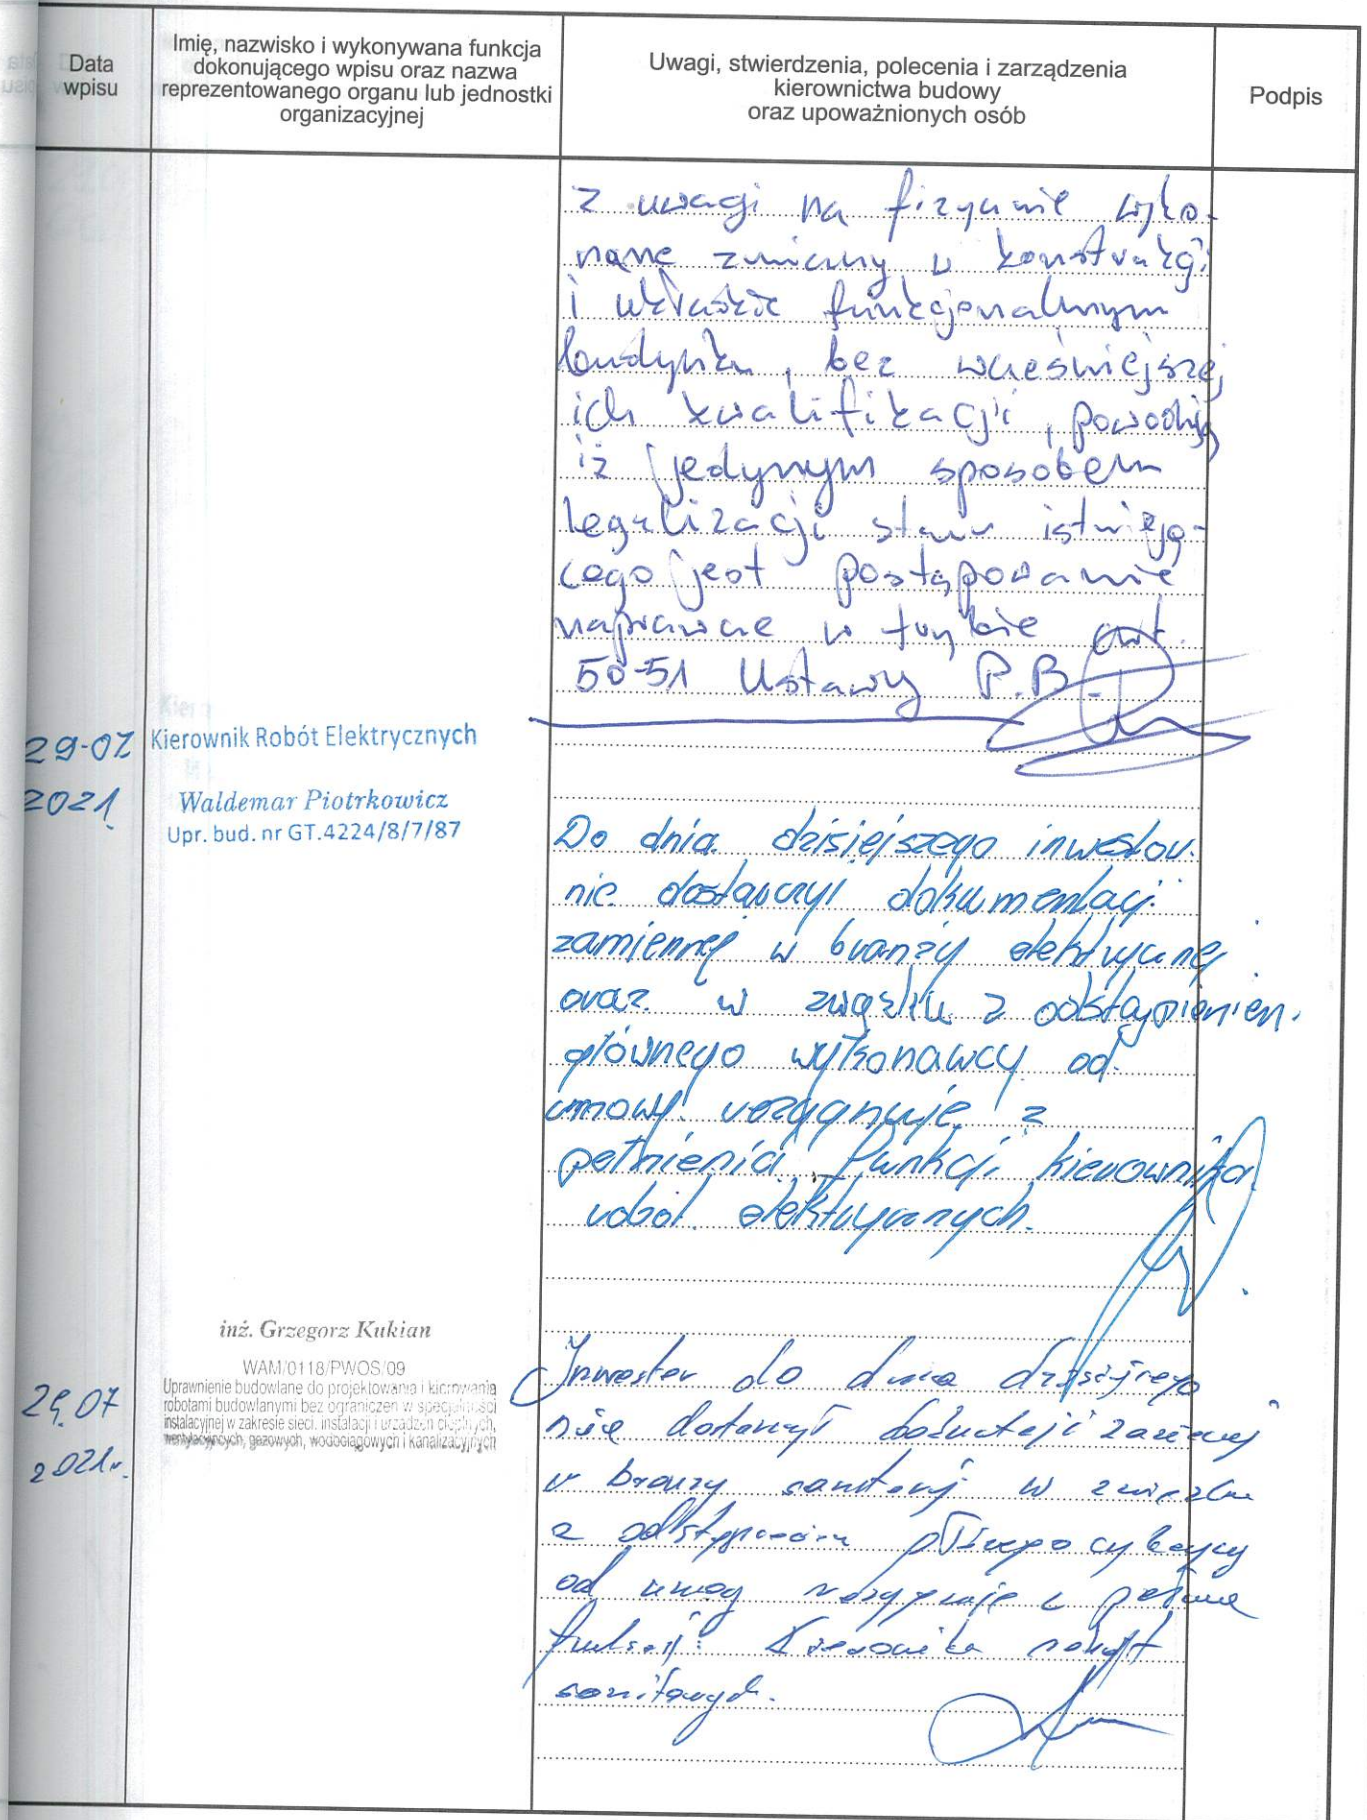 Data
wpisu
Imię, nazwisko i wykonywana funkcja
dokonującego wpisu oraz nazwa
reprezentowanego organu lub jednostki
organizacyjnej
Uwagi, stwierdzenia, polecenia i zarządzenia
kierownictwa budowy
oraz upoważnionych osób
Podpis
z uwagi na fizycznie wyko-
nane zmiany w konstrukcji
i układzie funkcjonalnym
budynku, bez wcześniejszej
ich kwalifikacji, powodują
iż jedynym sposobem
legalizacji stanu istnieją-
cego jest postępowanie
naprawcze w trybie art.
50-51 Ustawy P.B.
29-07
2021
Kierownik Robót Elektrycznych
Waldemar Piotrkowicz
Upr. bud. nr GT.4224/8/7/87
Do dnia dzisiejszego inwestor
nie dostarczył dokumentacji
zamiennej w branży elektrycznej
oraz w związku z odstąpieniem
głównego wykonawcy od
umowy rezygnuję z
pełnienia funkcji kierownika
robót elektrycznych.
29.07
2021r.
inż. Grzegorz Kukian
WAM/0118/PWOS/09
Uprawnienie budowlane do projektowania i kierowania
robotami budowlanymi bez ograniczeń w specjalności
instalacyjnej w zakresie sieci, instalacji i urządzeń cieplnych,
wentylacyjnych, gazowych, wodociągowych i kanalizacyjnych
Inwestor do dnia dzisiejszego
nie dostarczył zamiennej
w branży sanitarnej w związku
z odstąpieniem głównego
od umowy rezygnuję z
funkcji kierownika robót
sanitarnych.